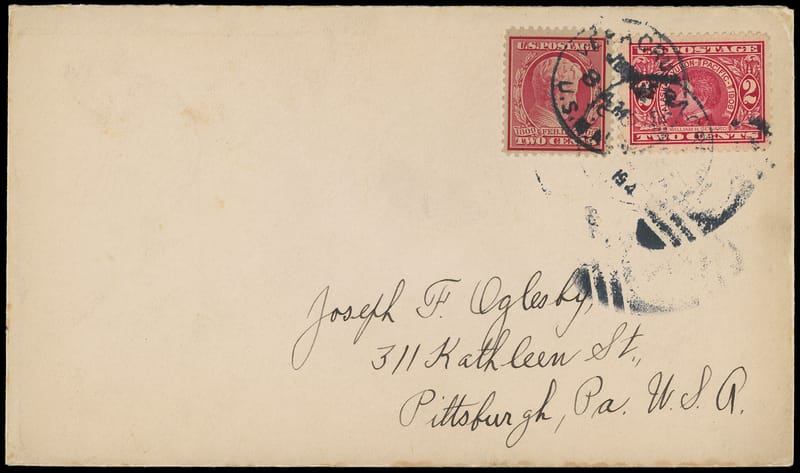 U.S. POSTAGE
1809 FEB. 12
TWO CENTS
U.S. POSTAGE
ALASKA YUKON-PACIFIC 1909
2 2
WILLIAM H. SEWARD
TWO CENTS
8 AM
U.S.
Joseph F. Oglesby,
311 Kathleen St.,
Pittsburgh, Pa. U. S. A.